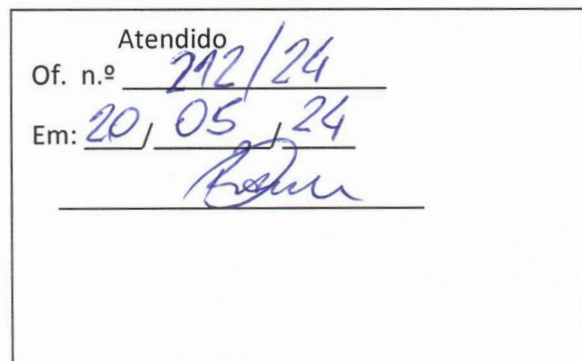 Atendido
Of. n.º 212/24
Em: 20/ 05 / 24